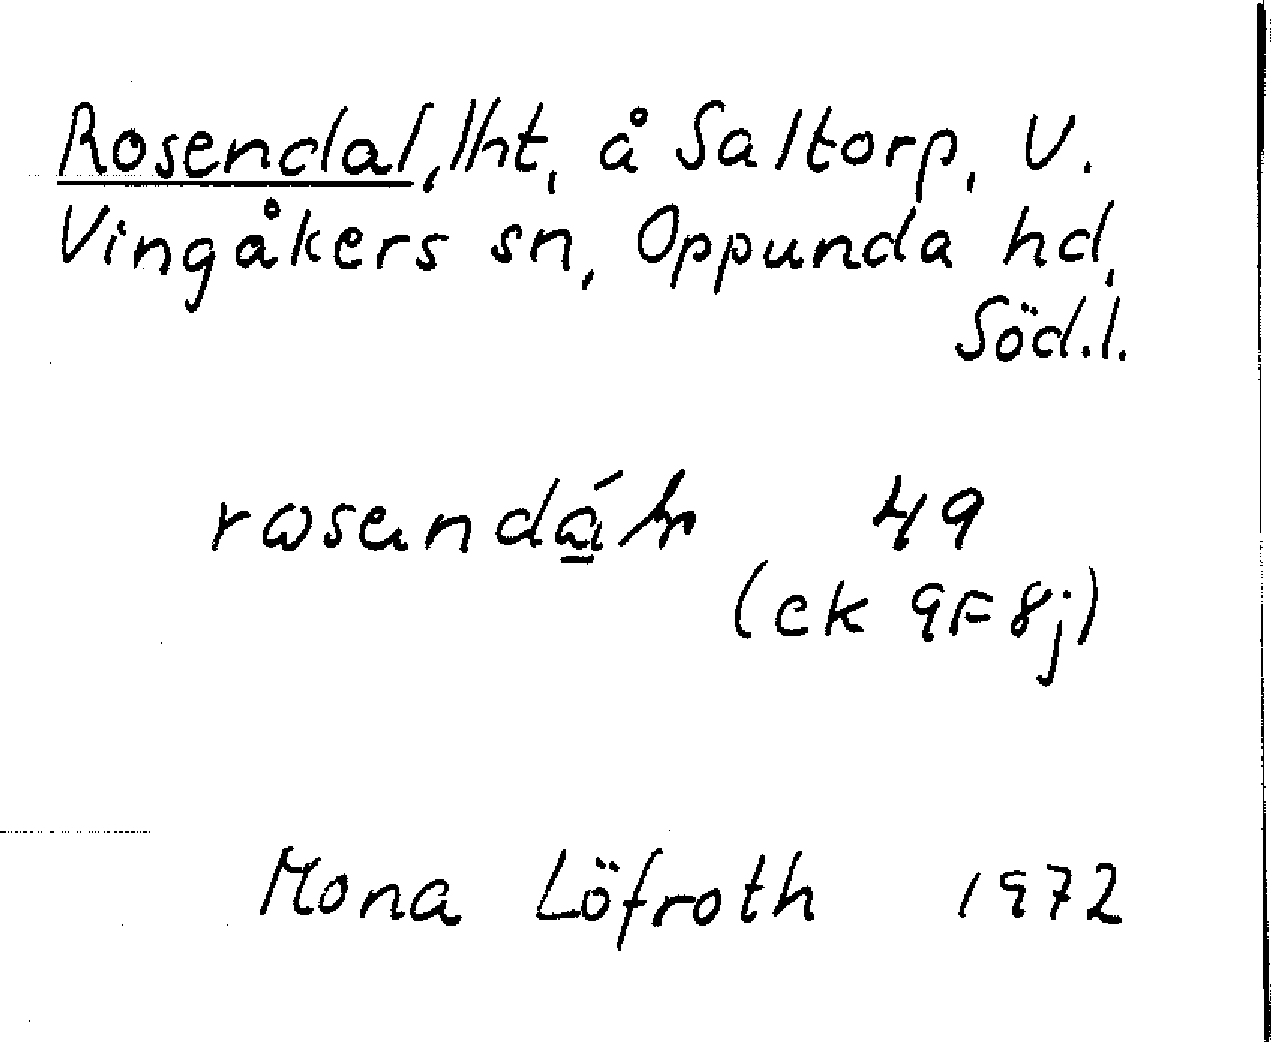 Rosendal, lht, å Saltorp, V.
Vingåkers sn, Oppunda hd,
Söd.l.
49
(ek 9F8j)
Mona Löfroth 1972